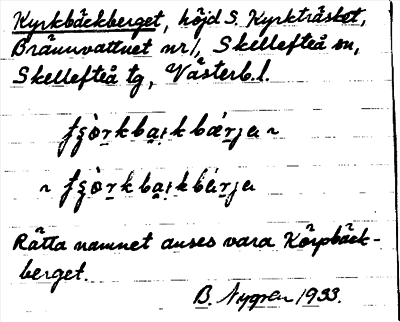 Kyrkbäckberget, höjd S. Kyrkträsket,
Brännvattnet nr 1, Skellefteå sn,
Skellefteå tg, Västerb. l.
Rätta namnet anses vara Körpbäck-
berget.
B. Nygren 1933.